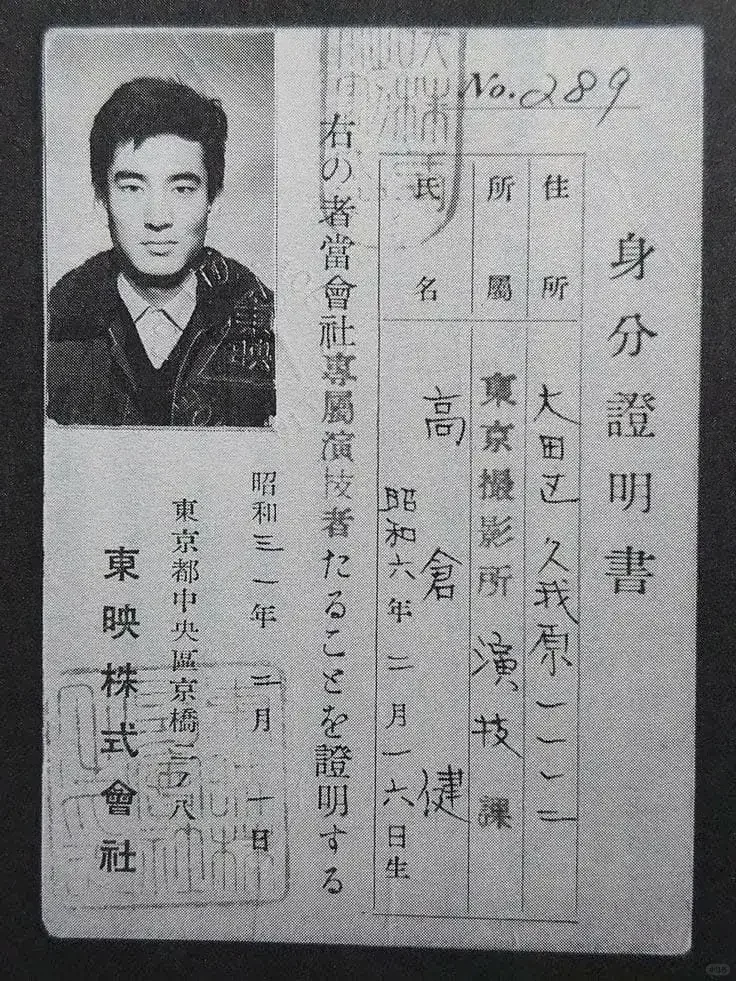 No.289
身分證明書
住所 大田区 久我原一、一一二
所屬 東京撮影所 演技課
氏名 高倉健
昭和六年二月一六日生
右の者當會社專屬演技者たることを證明する
昭和三一年二月一日
東京都中央區京橋二ノ八
東映株式會社
東映